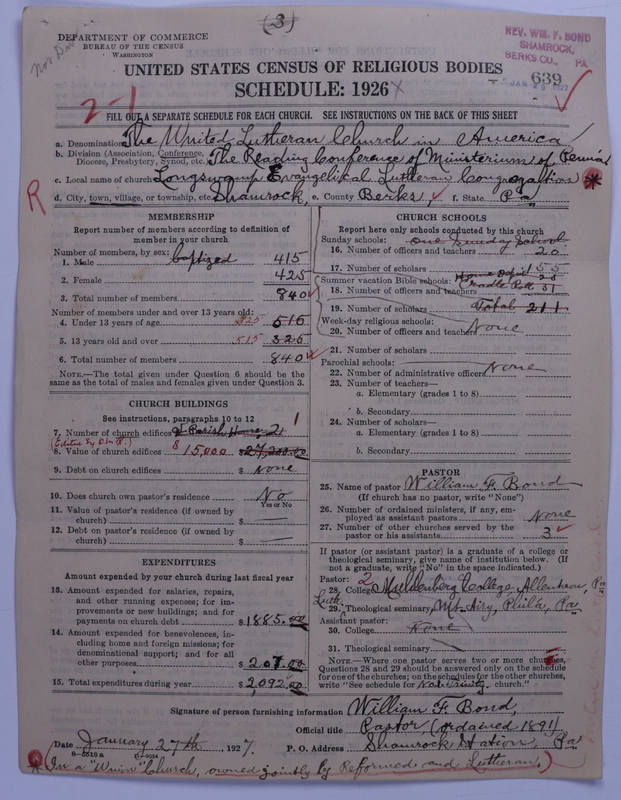 (3)
DEPARTMENT OF COMMERCE
BUREAU OF THE CENSUS
WASHINGTON
REV. WM. F. BOND
SHAMROCK,
BERKS CO., PA.
UNITED STATES CENSUS OF RELIGIOUS BODIES
JAN 29 1927
639
SCHEDULE: 1926
2-1
FILL OUT A SEPARATE SCHEDULE FOR EACH CHURCH. SEE INSTRUCTIONS ON THE BACK OF THIS SHEET
a. Denomination The United Lutheran Church in America
b. Division (Association, Conference, Diocese, Presbytery, Synod, etc.) The Reading Conference of Ministerium of
c. Local name of church Longswamp Evangelical Lutheran Congregation
R
d. City, town, village, or township, etc. Shamrock, e. County Berks, f. State Pa
MEMBERSHIP
Report number of members according to definition of
member in your church
Number of members, by sex: baptized
1. Male 415
2. Female 425
3. Total number of members 840
Number of members under and over 13 years old:
4. Under 13 years of age 325 516
5. 13 years old and over 515 326
6. Total number of members 840
NOTE.—The total given under Question 6 should be the
same as the total of males and females given under Question 3.
CHURCH BUILDINGS
See instructions, paragraphs 10 to 12
7. Number of church edifices & Parish House, 2 1
8. Value of church edifices $15,000 $27,200.00
9. Debt on church edifices $ None
10. Does church own pastor's residence No
Yes or No
11. Value of pastor's residence (if owned by
church) $
12. Debt on pastor's residence (if owned by
church) $
EXPENDITURES
Amount expended by your church during last fiscal year
13. Amount expended for salaries, repairs,
and other running expenses; for im-
provements or new buildings; and for
payments on church debt $1885.00
14. Amount expended for benevolences, in-
cluding home and foreign missions; for
denominational support; and for all
other purposes $207.00
15. Total expenditures during year $2092.00
CHURCH SCHOOLS
Report here only schools conducted by this church
Sunday schools: One Sunday School
16. Number of officers and teachers 20
17. Number of scholars 55
Summer vacation Bible schools: Home Dep't
18. Number of officers and teachers Cradle Roll 51
19. Number of scholars Total 211
Week-day religious schools:
20. Number of officers and teachers None
21. Number of scholars
Parochial schools:
22. Number of administrative officers None
23. Number of teachers—
a. Elementary (grades 1 to 8)
b. Secondary
24. Number of scholars—
a. Elementary (grades 1 to 8)
b. Secondary
PASTOR
25. Name of pastor William F. Bond
(If church has no pastor, write "None")
26. Number of ordained ministers, if any, em-
ployed as assistant pastors None
27. Number of other churches served by the
pastor or his assistants 3
If pastor (or assistant pastor) is a graduate of a college or
theological seminary, give name of institution below. (If
not a graduate, write "No" in the space indicated.)
Pastor: 2
28. College Muhlenberg College, Allentown, Pa
Luth.
29. Theological seminary Mt. Airy, Phila, Pa
Assistant pastor:
30. College None
31. Theological seminary
NOTE.—Where one pastor serves two or more churches,
Questions 28 and 29 should be answered only on the schedule
for one of the churches; on the schedules for the other churches,
write "See schedule for church."
Signature of person furnishing information William F. Bond,
Official title Pastor (ordained 1891)
Date January 27th, 1927. P. O. Address Shamrock Station, Pa
(In a "Union" Church, owned jointly by Reformed and Lutheran.)